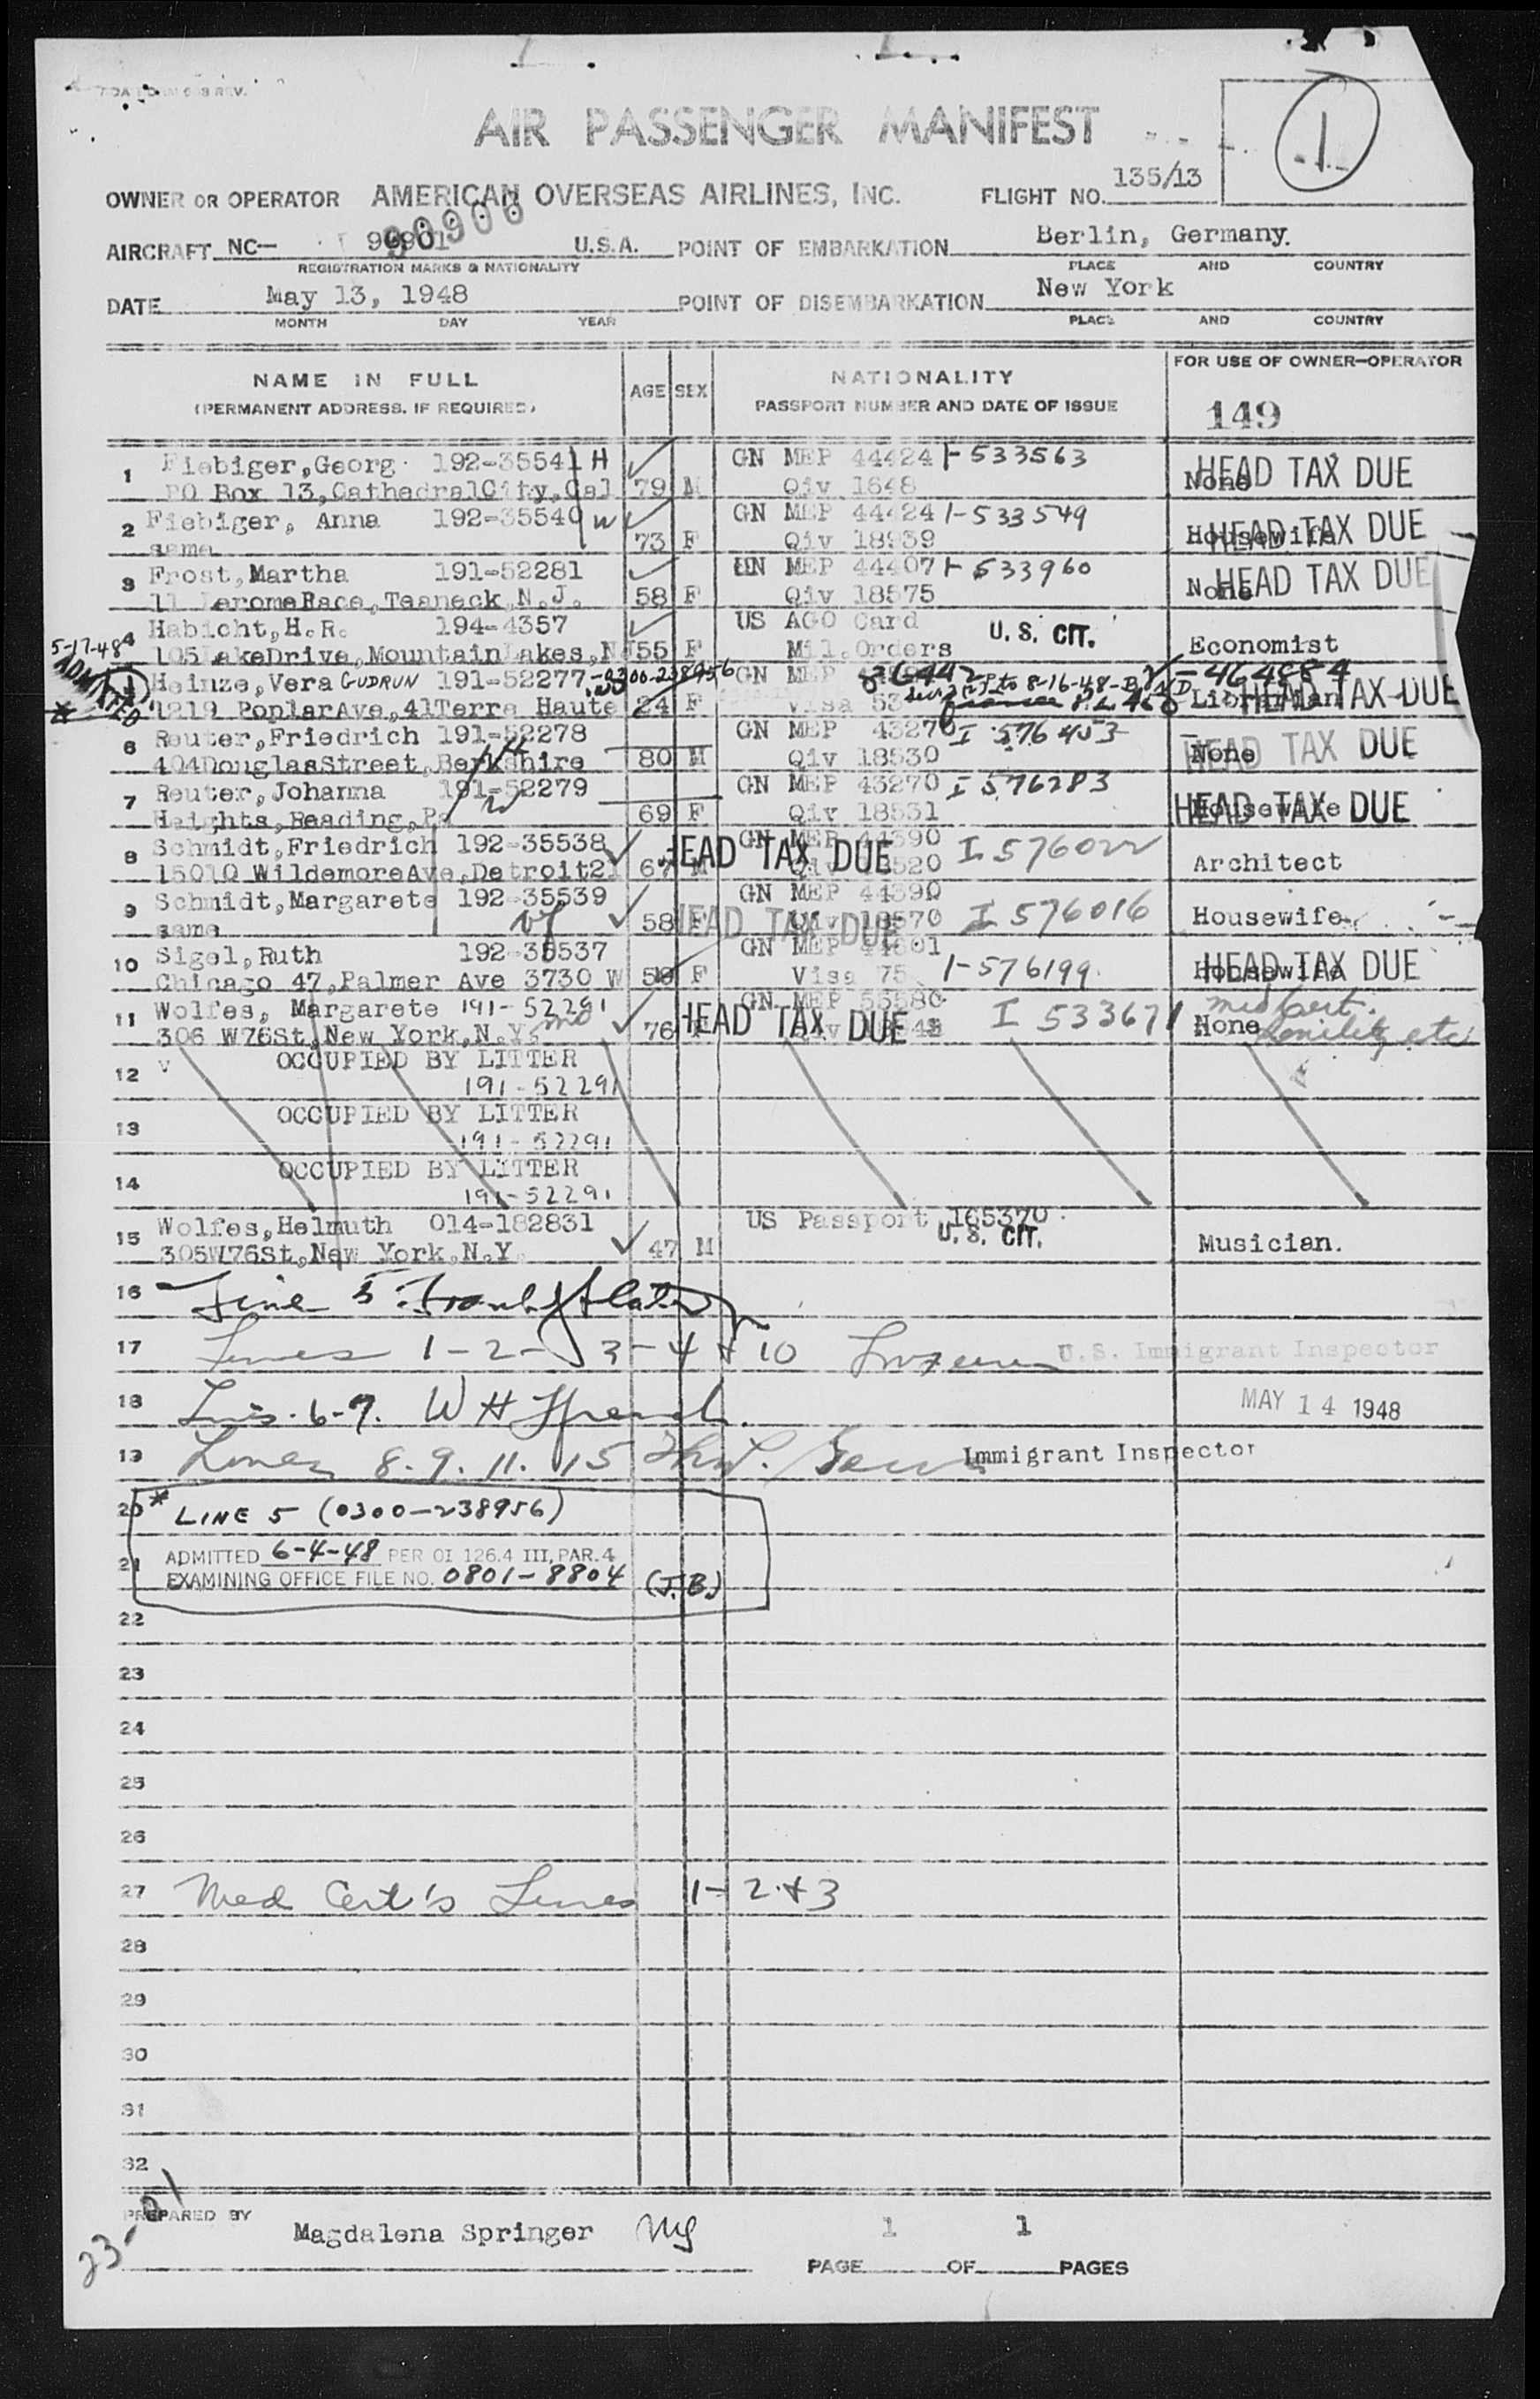 AIR PASSENGER MANIFEST
1
OWNER OR OPERATOR AMERICAN OVERSEAS AIRLINES, INC. FLIGHT NO. 135/13
90900
AIRCRAFT NC- 90901 U.S.A. POINT OF EMBARKATION Berlin, Germany.
REGISTRATION MARKS & NATIONALITY PLACE AND COUNTRY
DATE May 13, 1948 POINT OF DISEMBARKATION New York
MONTH DAY YEAR PLACE AND COUNTRY
NAME IN FULL AGE SEX NATIONALITY FOR USE OF OWNER-OPERATOR
(PERMANENT ADDRESS, IF REQUIRED) PASSPORT NUMBER AND DATE OF ISSUE 149
1 Fiebiger,Georg 192-35541 H GN MEP 44424 I-533563 HEAD TAX DUE
PO Box 13,CathedralCity,Cal 79 M Qiv 1648 None
2 Fiebiger, Anna 192-35540 W GN MEP 44424 I-533549 HEAD TAX DUE
same 73 F Qiv 18939 Housewife
3 Frost,Martha 191-52281 GN MEP 44407 I-533960 HEAD TAX DUE
11 JeromePace,Teaneck,N.J. 58 F Qiv 18575 None
4 Habicht,H.R. 194-4357 US AGO Card U.S. CIT.
105LakeDrive,MountainLakes,NJ 55 F Mil.Orders Economist
5-17-48
ADMITTED
Heinze,Vera GUDRUN 191-52277 -0300-238956 GN MEP 36442 V-464884 HEAD TAX DUE
1219 PoplarAve,41Terre Haute 24 F Visa 53 to 8-16-48 Librarian
6 Reuter,Friedrich 191-52278 GN MEP 43270 I 576453 HEAD TAX DUE
404DouglasStreet,Berkshire 80 M Qiv 18530 None
7 Reuter,Johanna 191-52279 GN MEP 43270 I 576283 HEAD TAX DUE
Heights,Reading,Pa 69 F Qiv 18531 Housewife
8 Schmidt,Friedrich 192-35538 HEAD TAX DUE GN MEP 44390 I 576022
15010 WildemoreAve,Detroit21 67 M Architect
9 Schmidt,Margarete 192-35539 GN MEP 44390 I 576016
same 58 F HEAD TAX DUE Qiv 18570 Housewife
10 Sigel,Ruth 192-35537 GN MEP HEAD TAX DUE
Chicago 47,Palmer Ave 3730 W F Visa 75 I-576199 Housewife
11 Wolfes, Margarete 191-52291 GN MEP 55580 I 533671 med cert.
306 W76St,New York,N.Y. 76 F HEAD TAX DUE None senility etc
12 OCCUPIED BY LITTER
191-52291
13 OCCUPIED BY LITTER
191-52291
14 OCCUPIED BY LITTER
191-52291
15 Wolfes,Helmuth 014-182831 US Passport 165370 U.S. CIT.
305W76St,New York,N.Y. 47 M Musician.
16 Line 5
17 Lines 1-2-3-4 & 10 U.S. Immigrant Inspector
18 Lines 6-7. W H MAY 14 1948
19 Lines 8. 9. 11. 15 Immigrant Inspector
20 * LINE 5 (0300-238956)
21 ADMITTED 6-4-48 PER OI 126.4 III, PAR. 4
EXAMINING OFFICE FILE NO. 0801-8804 (J.B.)
22
23
24
25
26
27 Med Cert's Lines 1-2 & 3
28
29
30
31
32
PREPARED BY
Magdalena Springer MS 1 1
PAGE OF PAGES